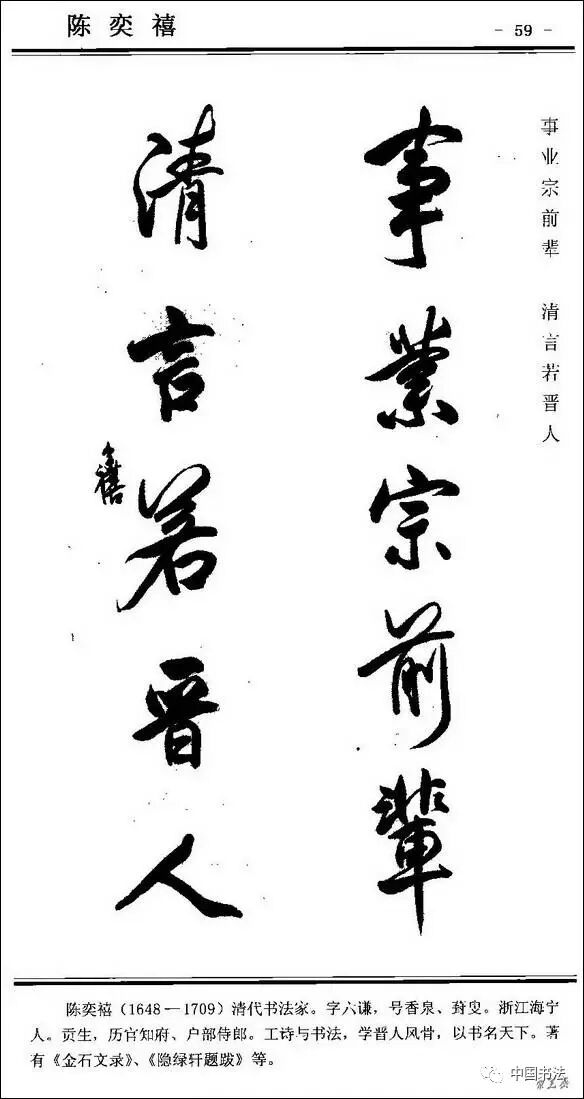 陈奕禧
- 59 -
事业宗前辈 清言若晋人
事業宗前輩
清言若晋人
禧
陈奕禧（1648—1709）清代书法家。字六谦，号香泉、葑叟。浙江海宁
人。贡生，历官知府、户部侍郎。工诗与书法，学晋人风骨，以书名天下。著
有《金石文录》、《隐绿轩题跋》等。
中国书法